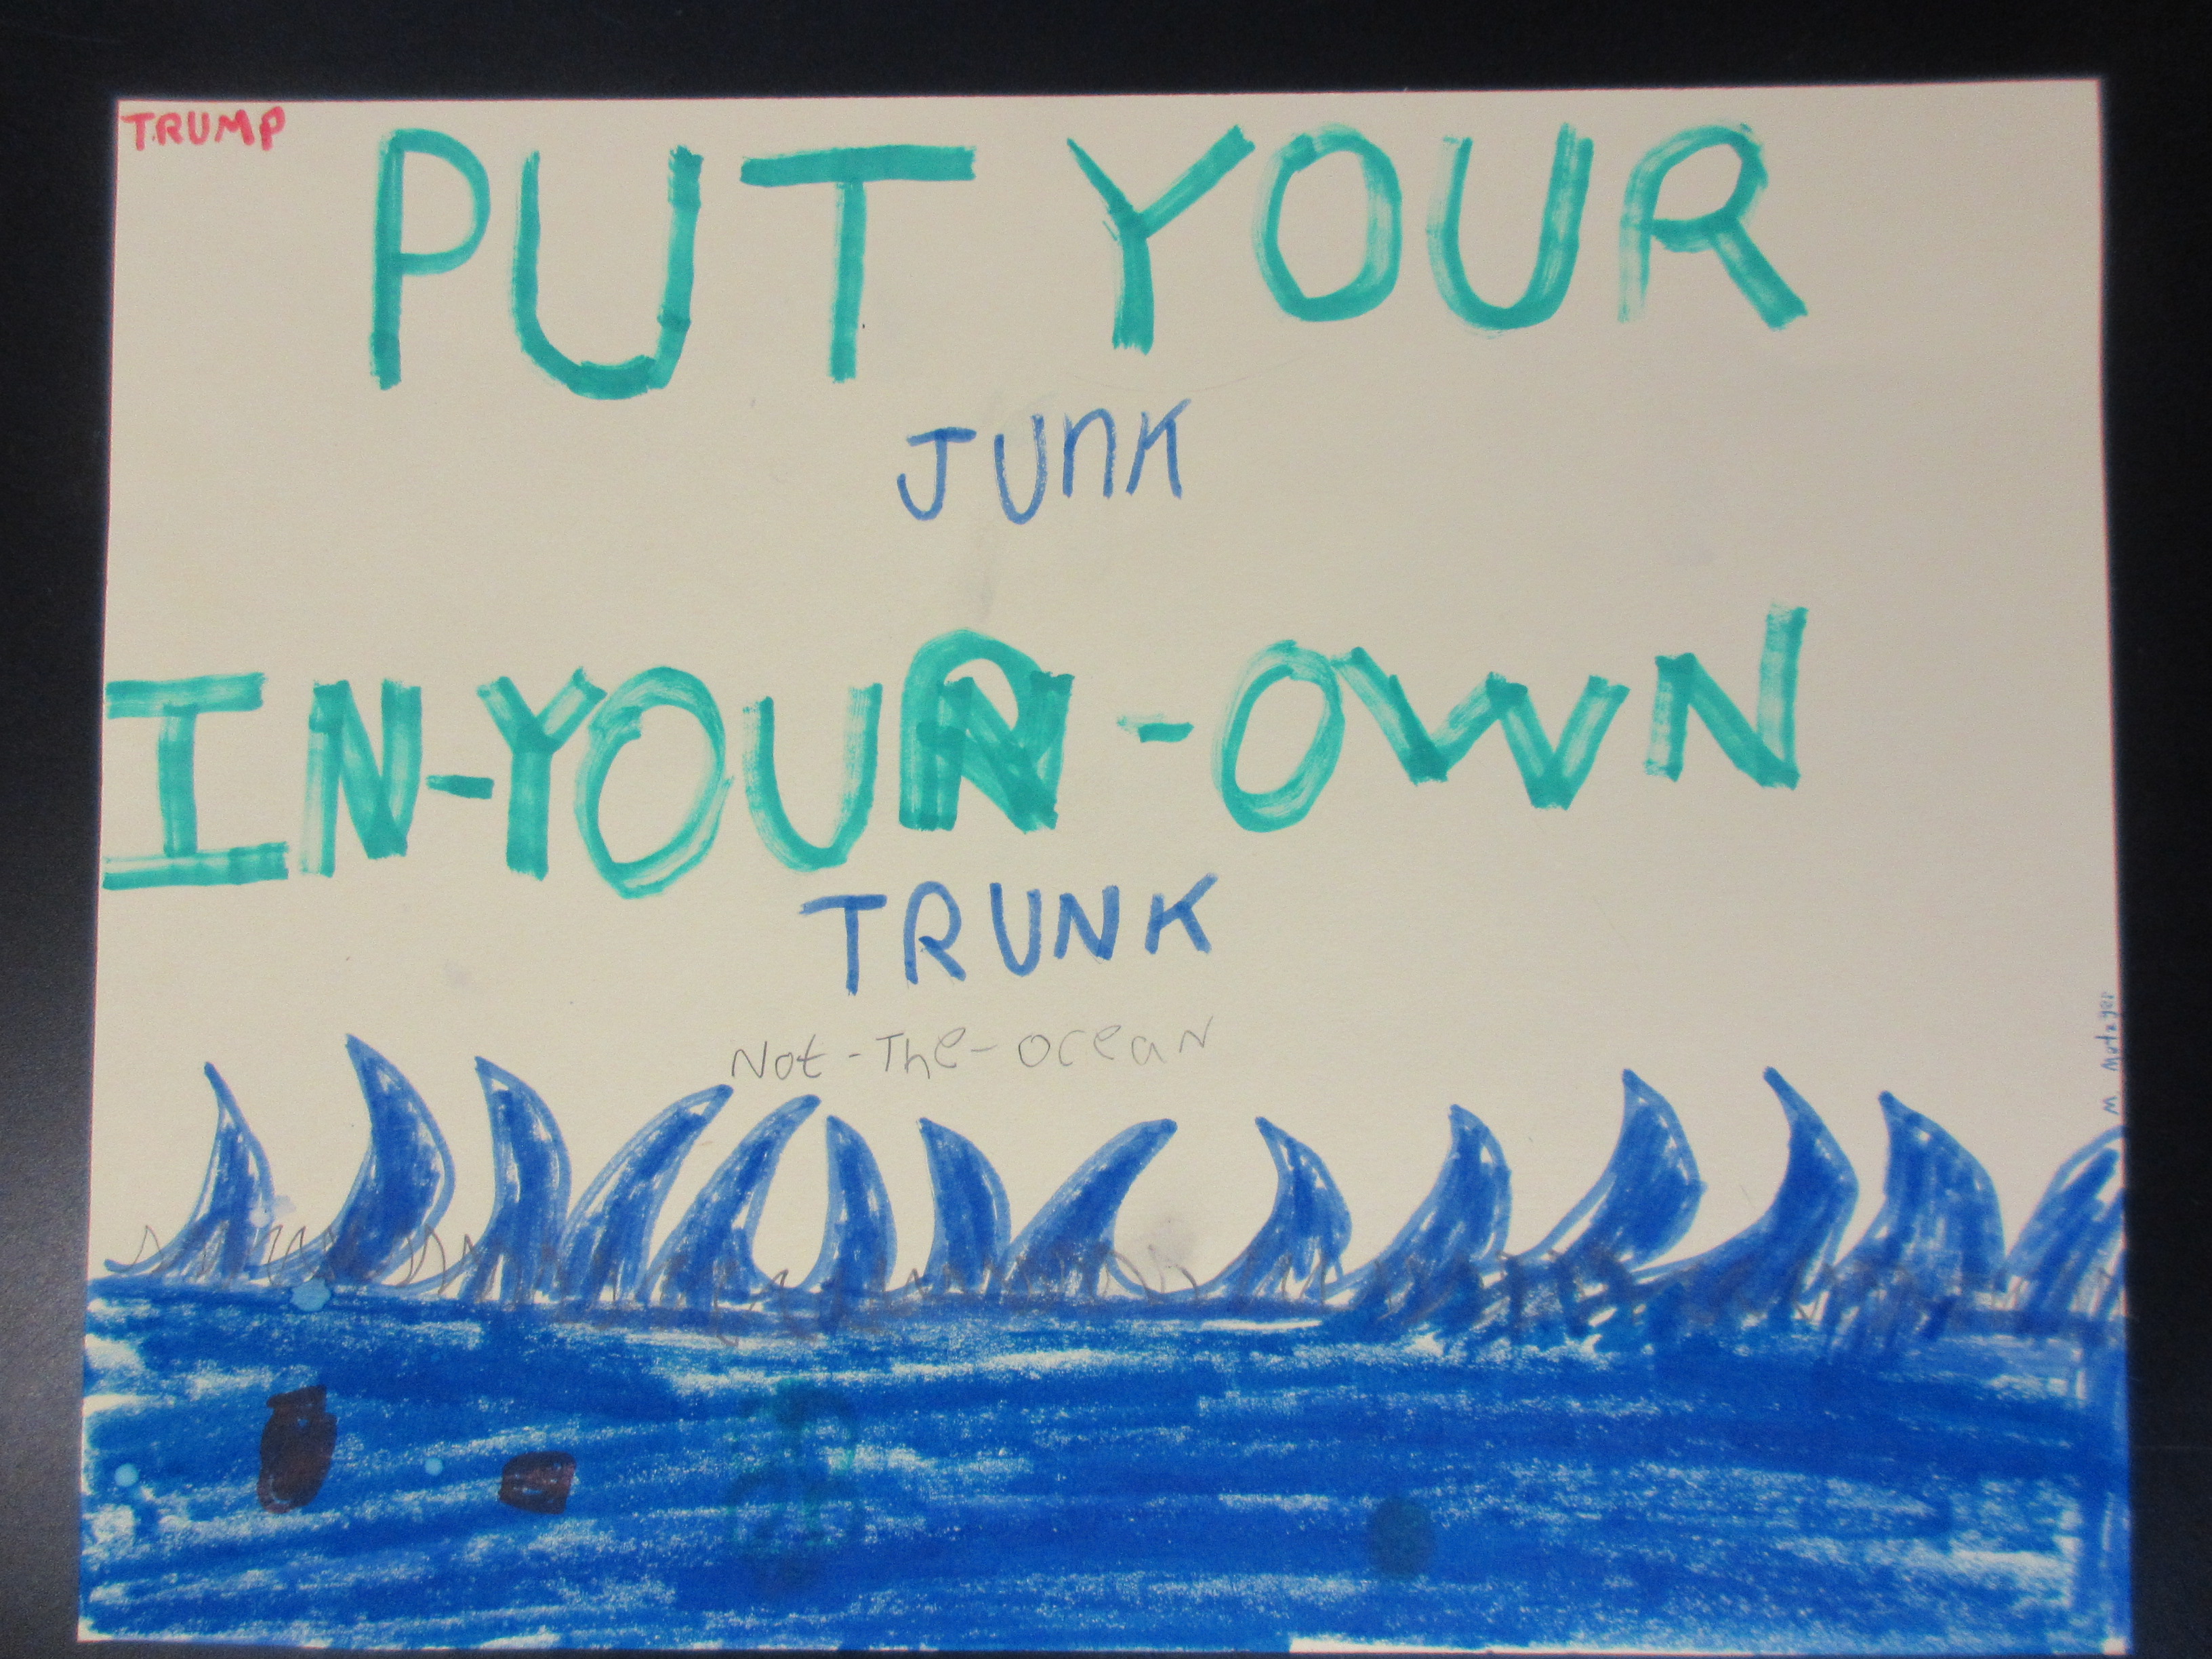 TRUMP
PUT YOUR
JUnK
IN-YOUR-OWN
TRUNK
Not-The-ocean
M. Metzger